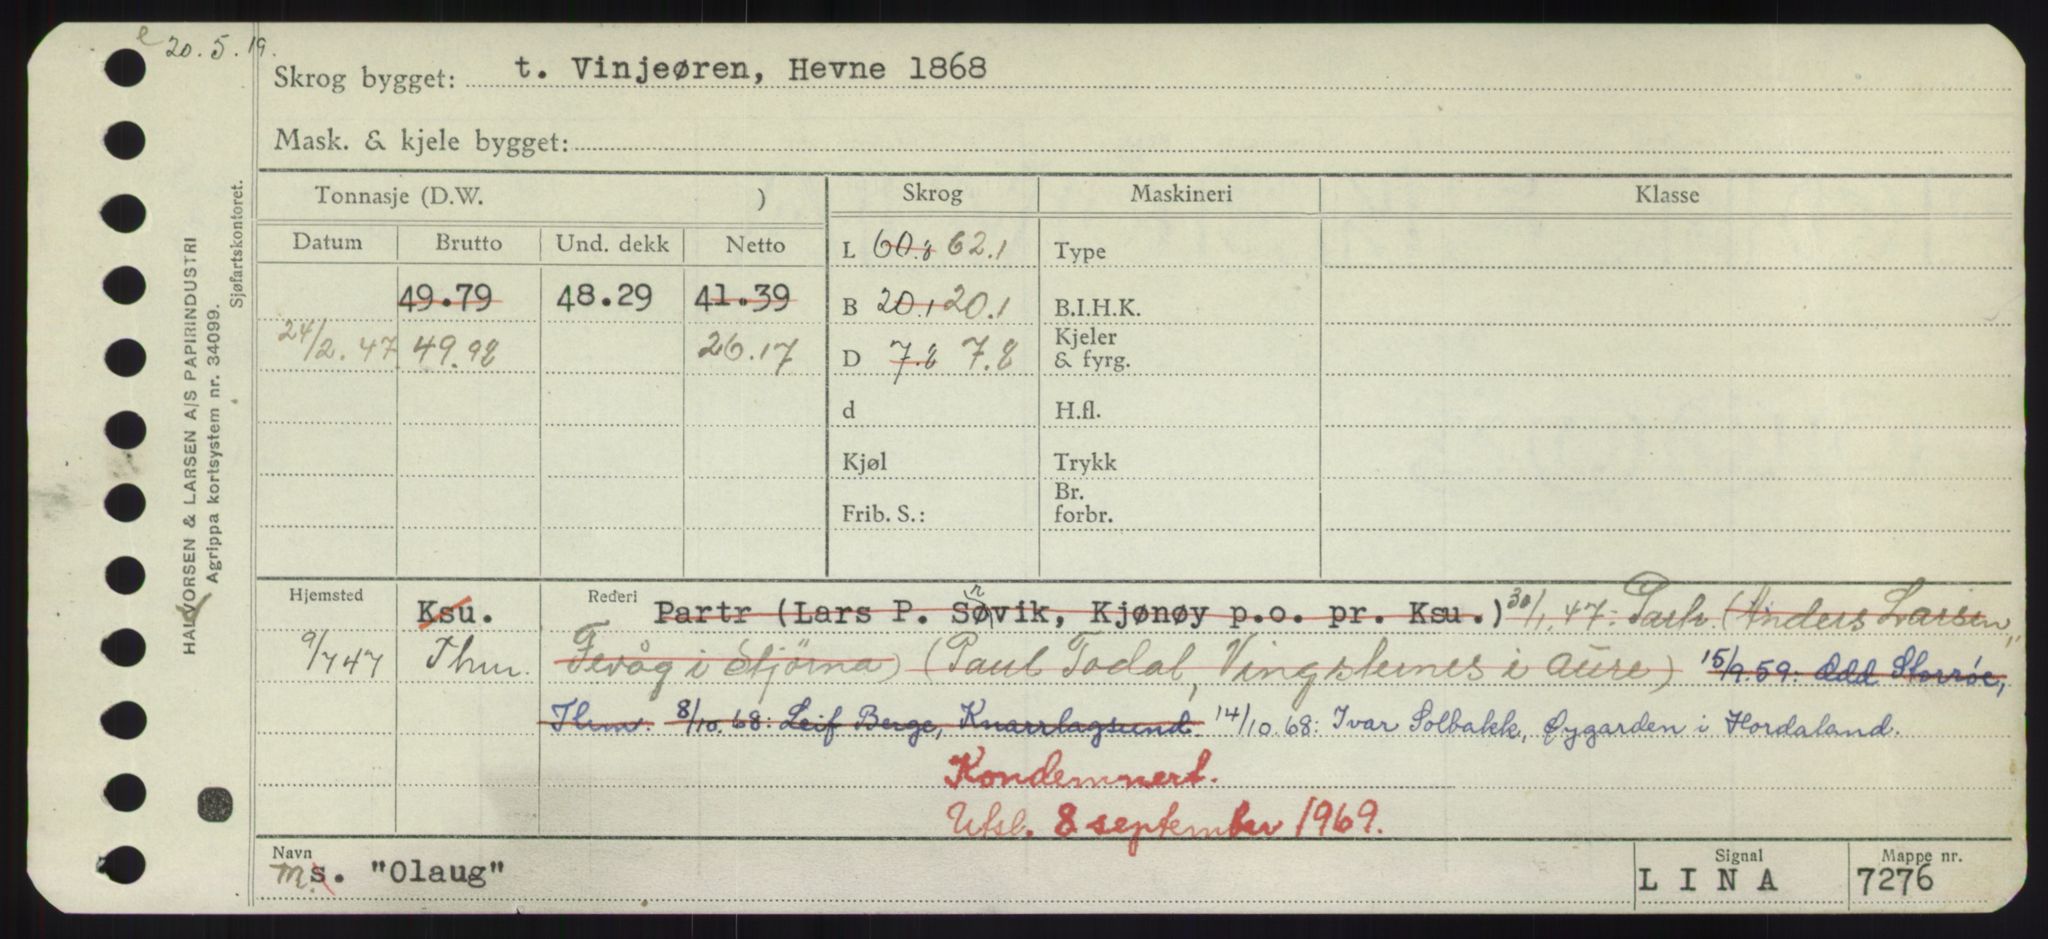 e 20.5.19.
Skrog bygget: t. Vinjeøren, Hevne 1868
Mask. & kjele bygget:
HALVORSEN & LARSEN A/S PAPIRINDUSTRI
Agrippa kortsystem nr. 34099.
Sjøfartskontoret.
Tonnasje (D.W. ) Skrog Maskineri Klasse
Datum Brutto Und. dekk Netto
L 60.8 62.1 Type
49.79 48.29 41.39 B 20.1 20.1 B.I.H.K.
24/2.47 49.98 26.17 D 7.8 7.8 Kjeler & fyrg.
d H.fl.
Kjøl Trykk
Frib. S.: Br. forbr.
Hjemsted Rederi
Ksu. Partr (Lars P. Sønvik, Kjønøy p.o. pr. Ksu.) 30/1.47: Partr. (Anders Larsen,
9/7 47 Thm. Fevåg i Stjörna) (Paul Todal, Vingsternes i Aure) 15/9.59: Odd Storrøe,
Thm. 8/10.68: Leif Berge, Knarrlagsund. 14/10.68: Ivar Solbakk, Øygarden i Hordaland.
Kondemnert.
Utsl. 8 september 1969.
Navn Signal Mappe nr.
m s. "Olaug" L I N A 7276